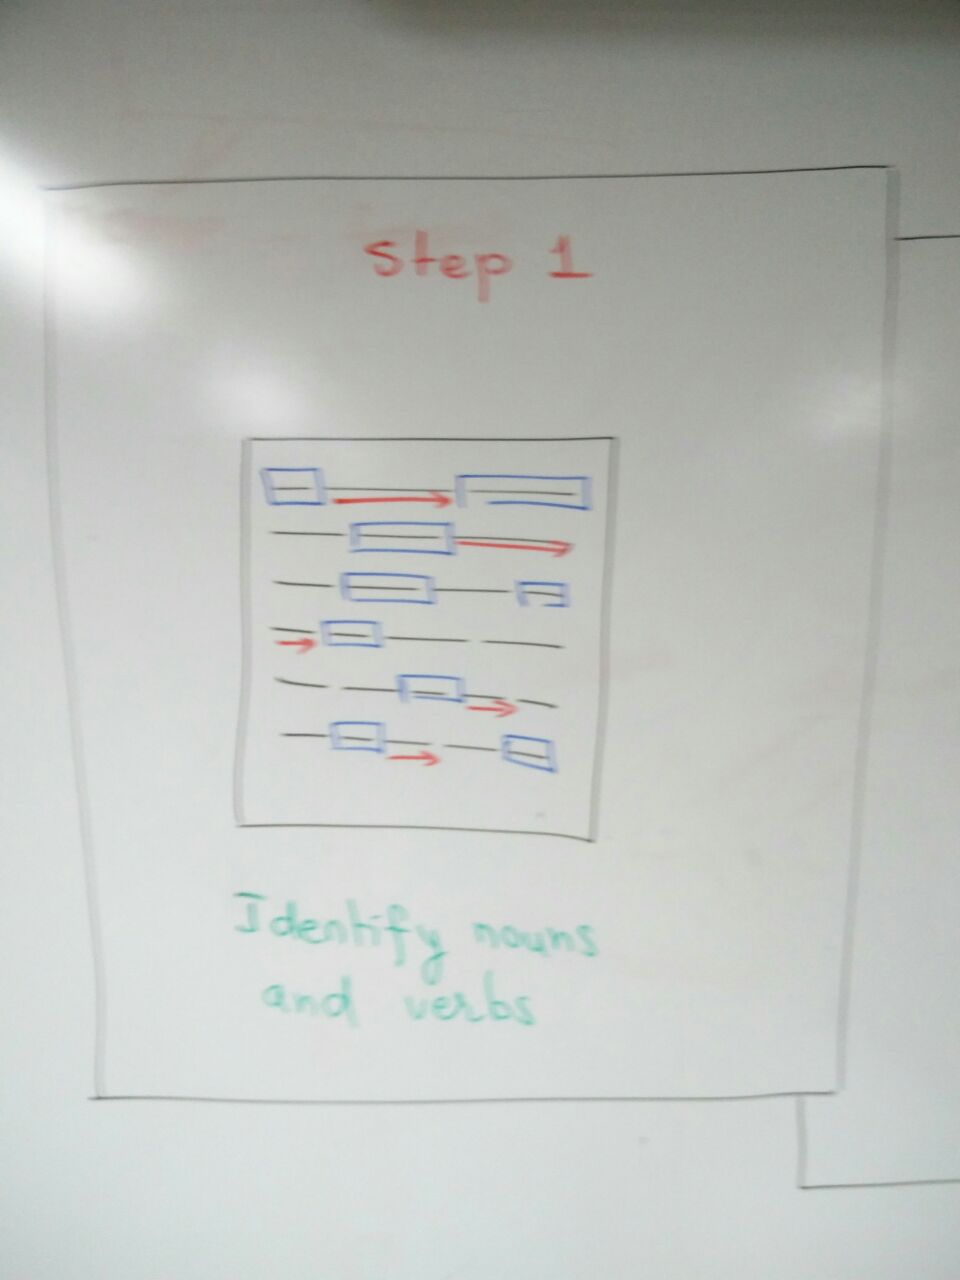 Step 1
Identify nouns
and verbs